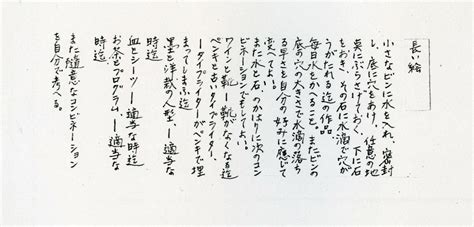 長い絵
小さなビンに水を入れ、密封
し、底に穴をあけ、任意の地
点にぶらさげておく、下に石
をおき、その石に水滴で穴が
うがたれる迄の作品
毎日水をかえること。またビンの
底の穴の大きさで水滴の落ち
る早さを自分の好みに應じて
変へてよい。
また水と石、のかはりに次のコン
ビネーションでもしてよい。
ワインと靴ー靴がなくなる迄
ペンキと古いタイプライター、
ータイプライターがペンキで埋
まってしまふ迄
墨と洋裁の人型ー適当な
時迄
血とシーツー適当な時迄
お茶とプログラム、ー適当な
時迄
また随意なコンビネーション
を自分で考へる。